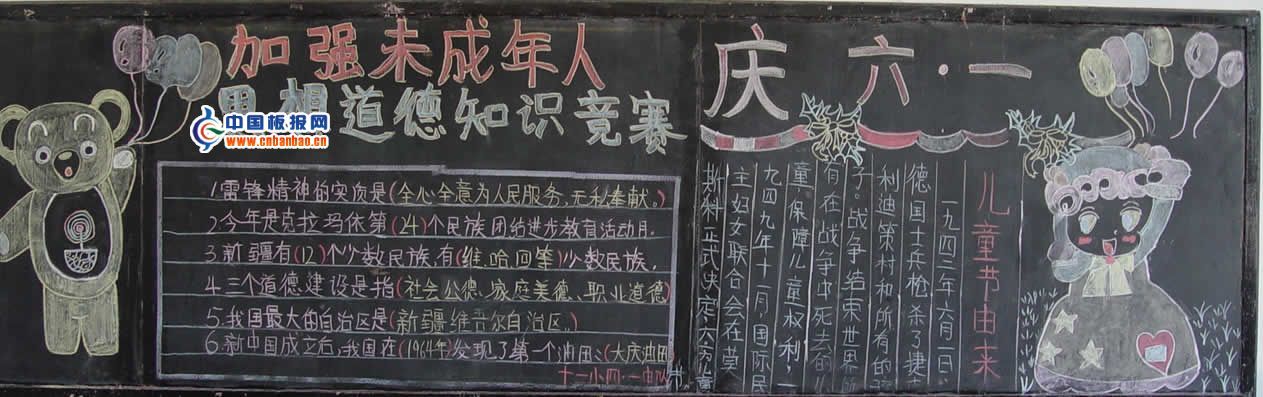 加强未成年人
思想道德知识竞赛
中国板报网
www.cnbanbao.cn
1.雷锋精神的实质是(全心全意为人民服务,无私奉献。)
2.今年是克拉玛依第(24)个民族团结进步教育活动月.
3.新疆有(12)个少数民族.有(维、哈、回等)少数民族.
4.三个道德建设是指(社会公德、家庭美德、职业道德)
5.我国最大的自治区是(新疆维吾尔自治区。)
6.新中国成立后,我国在(1964年)发现了第一个油田:(大庆油田)
十一小四·一中队
庆六·一
儿童节由来
一九四二年六月一日,
德国士兵枪杀了捷
利迪策村和所有的孩
子。战争结束世界所
有在战争中死去的儿
童.保障儿童权利,一
九四九年十一月,国际民
主妇女联合会在莫
斯科正式决定,六月为儿童